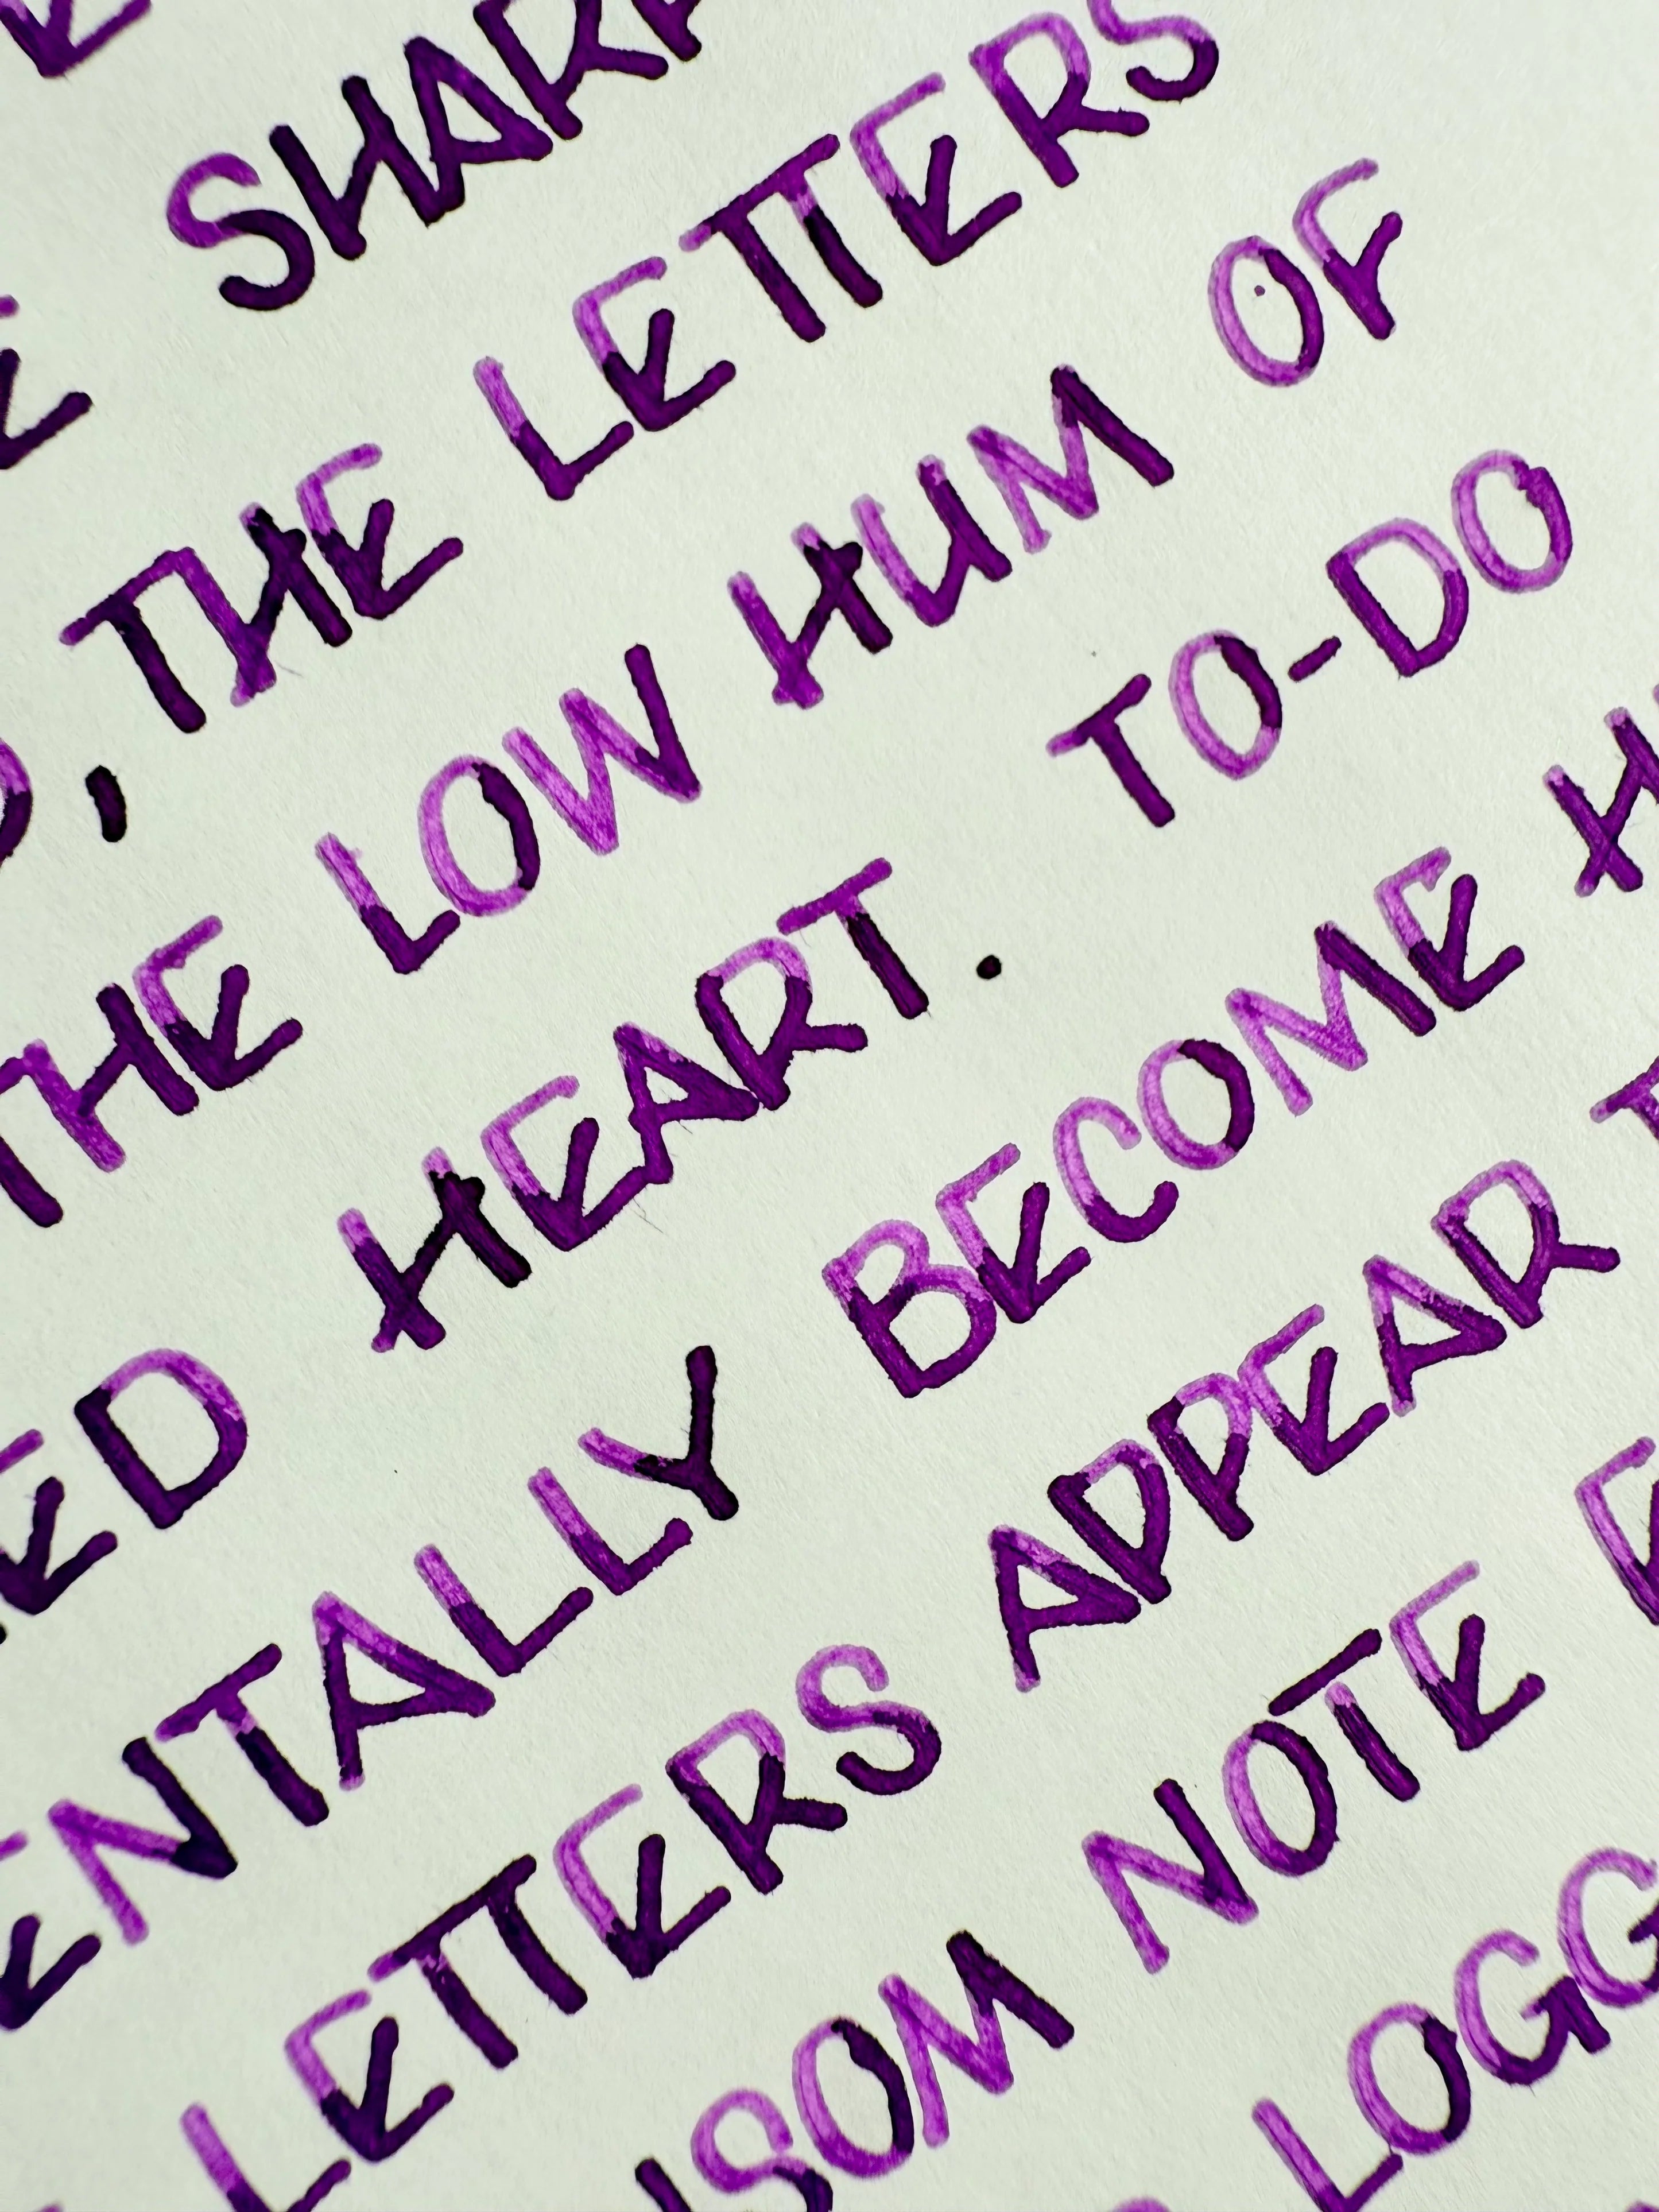 SHARP
, THE LETTERS
THE LOW HUM OF
ED HEART. TO-DO
ENTALLY BECOME H
LETTERS APPEAR T
SOM NOTE
LOGG